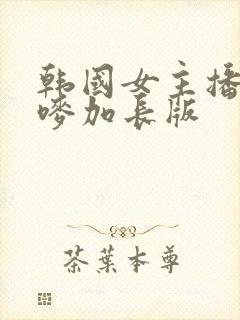 韩国女主播
嘜加长版
茶葉本尊